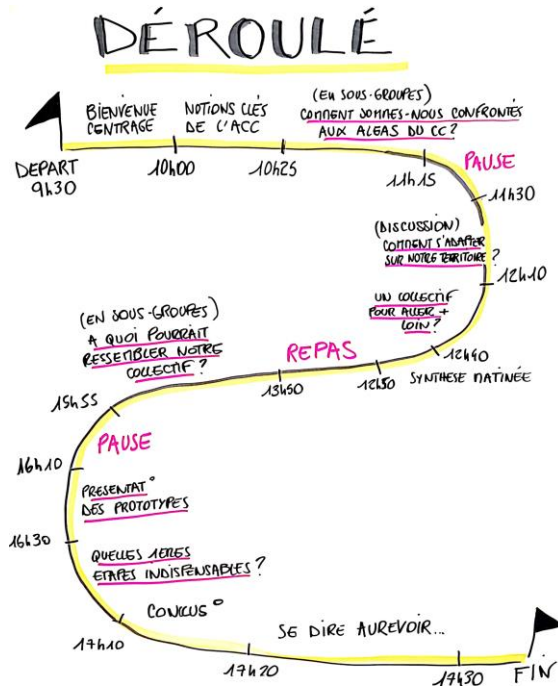 DÉROULÉ
BIENVENUE
CENTRAGE
NOTIONS CLÉS
DE L'ACC
(EN SOUS-GROUPES)
COMMENT SOMMES-NOUS CONFRONTÉS
AUX ALEAS DU CC?
DEPART
9h30
10h00
10h25
11h15
PAUSE
11h30
(DISCUSSION)
COMMENT S'ADAPTER
SUR NOTRE TERRITOIRE?
12h10
UN COLLECTIF
POUR ALLER +
LOIN?
12h40
SYNTHESE MATINÉE
12h50
REPAS
13h50
(EN SOUS-GROUPES)
A QUOI POURRAIT
RESSEMBLER NOTRE
COLLECTIF?
15h55
PAUSE
16h10
PRESENTAT°
DES PROTOTYPES
16h30
QUELLES 1ERES
ETAPES INDISPENSABLES?
CONCLUS°
17h10
17h20
SE DIRE AUREVOIR...
17h30
FIN